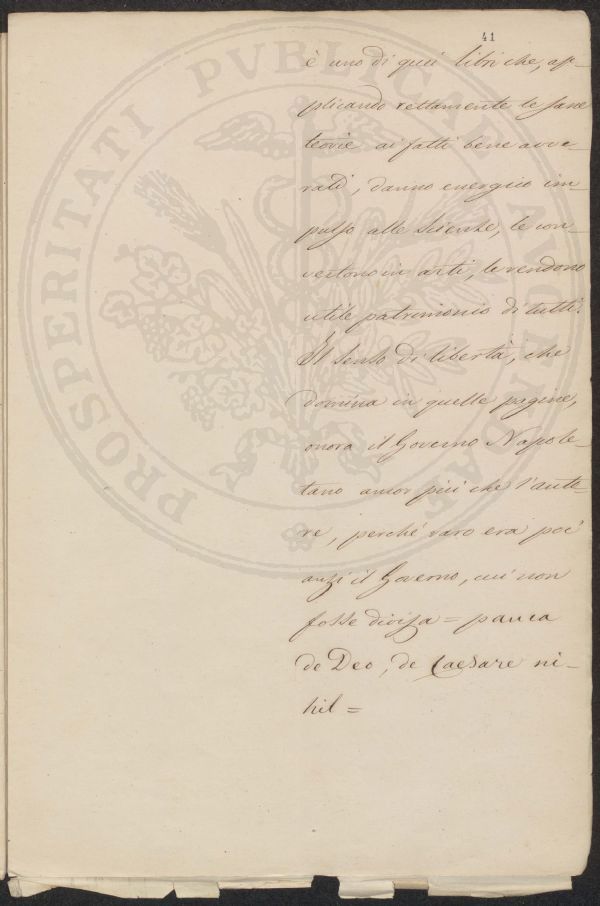 41
è uno di quei libri che, ap-
plicando rettamente le sane
teorie ai fatti bene avve-
rati, danno energico im-
pulso alle scienze, le con-
vertono in arti, le rendono
utile patrimonio di tutti.
Il senso di libertà, che
domina in quelle pagine,
onora il Governo Napole-
tano ancor più che l'auto-
re, perché raro era poc'
anzi il Governo, cui non
fosse divisa = pauca
de Deo, de Caesare ni-
hil =
PROSPERITATI PVBLICAE AVGENDAE